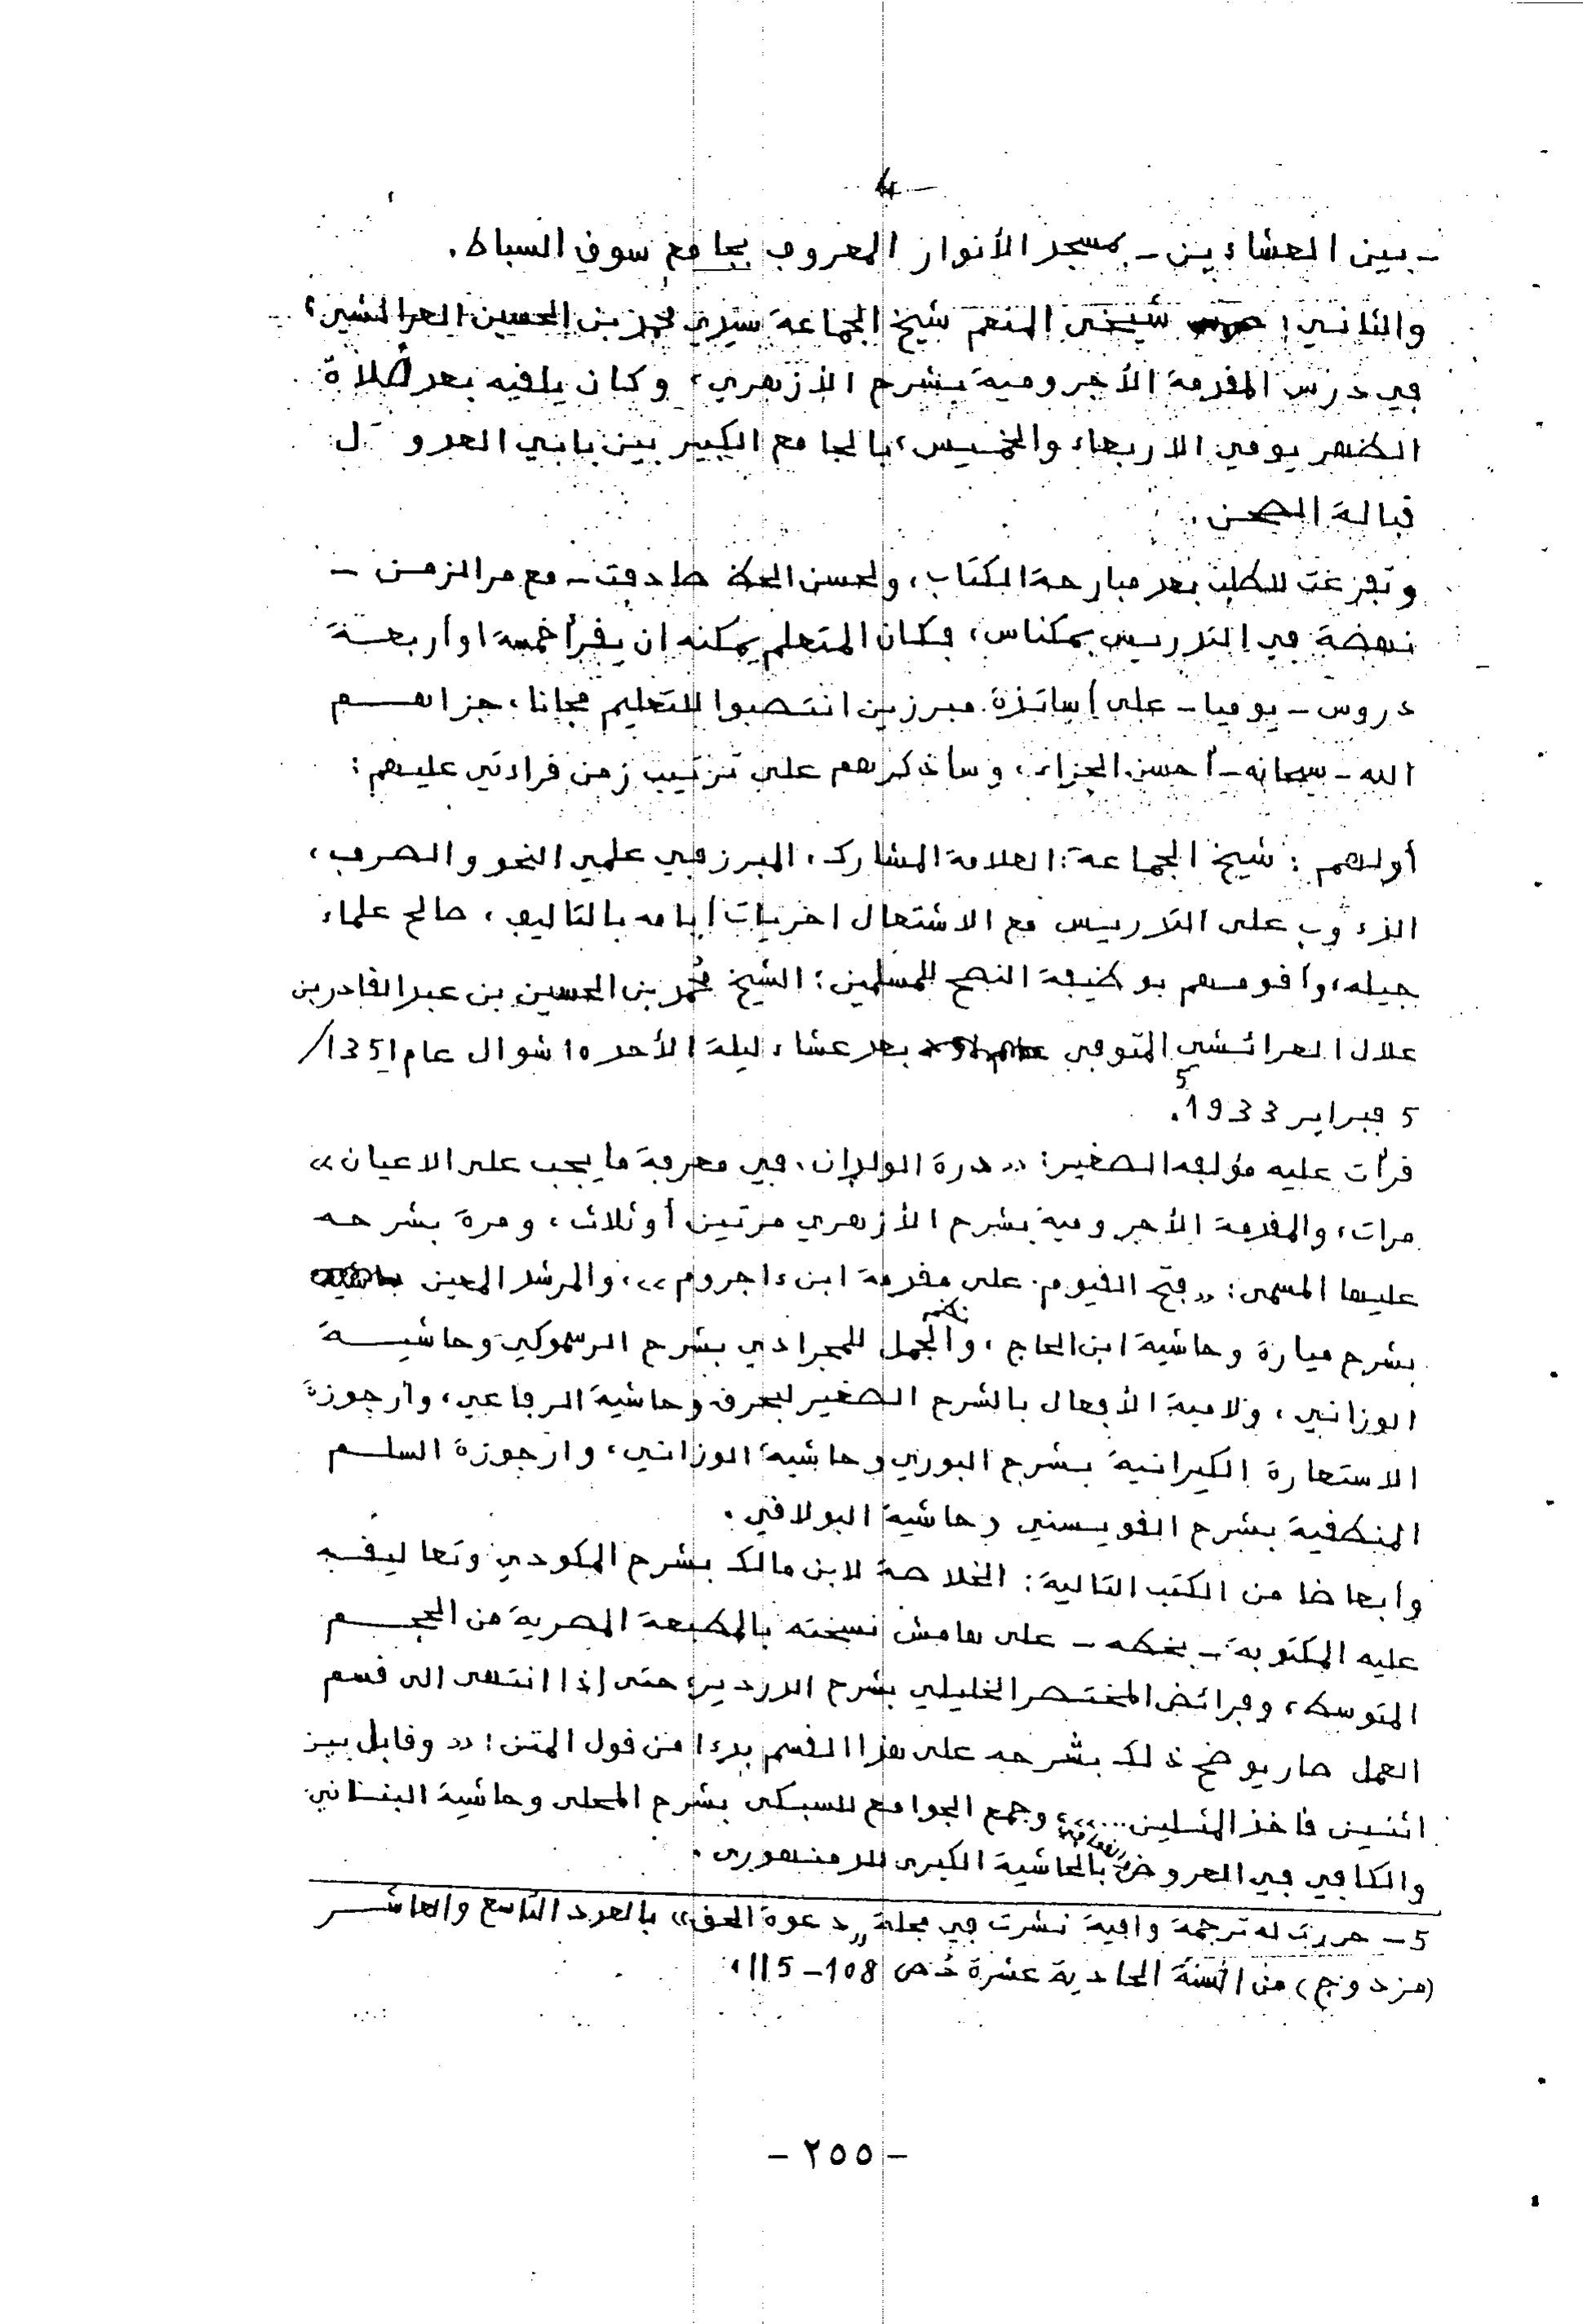 4
- بين العشاءين - بمسجد الأنوار المعروف بجامع سوق السباط.
والثاني: شيخي المنعم شيخ الجماعة سيدي محمد بن الحسين العرائشي،
في درس المقدمة الأجرومية بشرح الأزهري، وكان يلقيه بعد صلاة
الظهر يومي الاربعاء والخميس، بالجامع الكبير بين بابي العدول
قبالة الصحن.
وتفرغت للطلب بعد مبارحة الكتاب، ولحسن الحظ صادفت - مع مر الزمن -
نهضة في التدريس بمكناس، فكان المتعلم يمكنه ان يقرأ خمسة او أربعة
دروس - يوميا - على أساتذة مبرزين انتصبوا للتعليم مجانا، جزاهم
الله - سبحانه - أحسن الجزاء، وسأذكرهم على ترتيب زمن قراءتي عليهم:
أولهم: شيخ الجماعة: العلامة المشارك، المبرز في علمي النحو والصرف،
الذءوب على التدريس مع الاشتغال اخريات أيامه بالتاليف، صالح علماء
جيله، وأقومهم بوظيفة النصح للمسلمين: الشيخ محمد بن الحسين بن عبد القادر بن
علال العرائشي المتوفى بعد عشاء ليلة الأحد 10 شوال عام 1351/
5 فبراير 1933.5
قرأت عليه مؤلفه الصغير: «درة الولدان، في معرفة ما يجب على الاعيان»
مرات، والمقدمة الأجرومية بشرح الأزهري مرتين أو ثلاث، ومرة بشرحه
عليها المسمى: «فتح القيوم. على مقدمة ابن ءاجروم»، والمرشد المعين
بشرح ميارة وحاشية ابن الحاج، ونظم الجمل للمجرادي بشرح الرسموكي وحاشية
الوزاني، ولامية الأفعال بالشرح الصغير لبحرق وحاشية الرفاعي، وأرجوزة
الاستعارة الكيرانية بشرح البوري وحاشية الوزاني، وارجوزة السلم
المنطقية بشرح القويسني وحاشية البولاقي.
وأبعاضا من الكتب التالية: الخلاصة لابن مالك بشرح المكودي وتعاليقه
عليه المكتوبة - بخطه - على هامش نسخته بالمطبعة المصرية من الحجم
المتوسط، وفرائض المختصر الخليلي بشرح الدردير، حتى إذا انتهى الى قسم
العمل صار يوضح ذلك بشرحه على هذا القسم بدءا من قول المتن: «وقابل بين
اثنين فأخذ المثلين...»، وجمع الجوامع للسبكي بشرح المحلى وحاشية البناني
والكافي في العروض والقوافي بالحاشية الكبرى للدمنهورى.
5 - حررت له ترجمة وافية نشرت في مجلة «دعوة الحق» بالعدد التاسع والعاشر
(مزدوج) من السنة الحادية عشرة ص 108 - 115،
- ٢٥٥ -